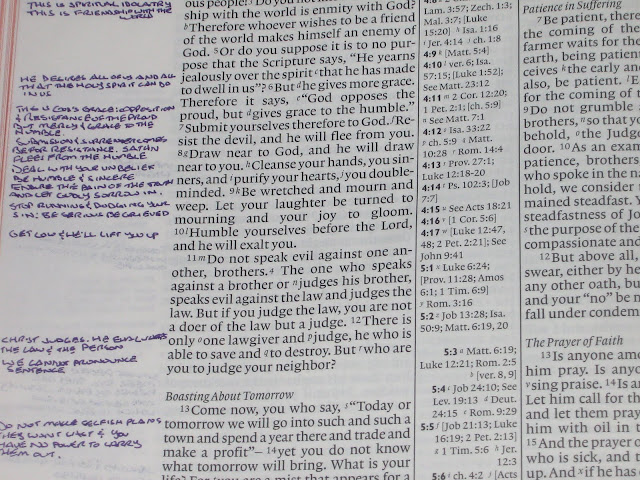 THIS IS SPIRITUAL IDOLATRY
THIS IS FRIENDSHIP WITH THE
WORLD
HE DESIRES ALL OF US AND ALL
THAT THE HOLY SPIRIT CAN DO
IN US
THIS IS GOD'S GRACE: OPPOSITION
& RESISTANCE OF THE PROUD
BUT MERCY & GRACE TO THE
HUMBLE
SUBMISSION & SURRENDER COMES
BEFORE RESISTANCE. SATAN
FLEES FROM THE HUMBLE
DEAL WITH YOUR UNBELIEF
BE HUMBLE & SINCERE
ENDURE THE PAIN OF THE
AND LET GODLY SORROW IN
STOP RUNNING & DODGING YOUR
SIN; BE SERIOUS BE GRIEVED
GET LOW & HE'LL LIFT YOU UP
CHRIST JUDGES. HE
THE LAW & THE PERSON
WE CANNOT PRONOUNCE
SENTENCE
DO NOT MAKE SELFISH PLANS
THEY WON'T LAST & YOU
HAVE NO POWER TO CARRY
THEM OUT.
ous people! Do you not
ship with the world is enmity with God?
Therefore whoever wishes to be a friend
of the world makes himself an enemy of
God. 5Or do you suppose it is to no pur-
pose that the Scripture says, “He yearns
jealously over the spirit that he has made
to dwell in us”? 6But he gives more grace.
Therefore it says, “God opposes the
proud, but gives grace to the humble.”
7Submit yourselves therefore to God. Re-
sist the devil, and he will flee from you.
8Draw near to God, and he will draw
near to you. Cleanse your hands, you sin-
ners, and purify your hearts, you double-
minded. 9Be wretched and mourn and
weep. Let your laughter be turned to
mourning and your joy to gloom.
10Humble yourselves before the Lord,
and he will exalt you.
11Do not speak evil against one an-
other, brothers.4 The one who speaks
against a brother or judges his brother,
speaks evil against the law and judges the
law. But if you judge the law, you are not
a doer of the law but a judge. 12There is
only one lawgiver and judge, he who is
able to save and to destroy. But who are
you to judge your neighbor?
Boasting About Tomorrow
13Come now, you who say, “Today or
tomorrow we will go into such and such a
town and spend a year there and trade and
make a profit”— 14yet you do not know
what tomorrow will bring. What is your
life? For you are a mist that appears for a
Lam. 3:57; Zech. 1:3;
Mal. 3:7; [Luke
15:20] Isa. 1:16
Jer. 4:14 ch. 1:8
4:9 [Matt. 5:4]
4:10 ver. 6; Isa.
57:15; [Luke 1:52];
See Matt. 23:12
4:11 2 Cor. 12:20;
1 Pet. 2:1; [ch. 5:9]
See Matt. 7:1
4:12 Isa. 33:22
ch. 5:9 Matt.
10:28 Rom. 14:4
4:13 Prov. 27:1;
Luke 12:18-20
4:14 Ps. 102:3; [Job
7:7]
4:15 See Acts 18:21
4:16 [1 Cor. 5:6]
4:17 [Luke 12:47,
48; 2 Pet. 2:21]; See
John 9:41
5:1 Luke 6:24;
[Prov. 11:28; Amos
6:1; 1 Tim. 6:9]
Rom. 3:16
5:2 Job 13:28; Isa.
50:9; Matt. 6:19, 20
5:3 Matt. 6:19;
Luke 12:21; Rom. 2:5
[ver. 8, 9]
5:4 Job 24:10; See
Lev. 19:13 Deut.
24:15 Rom. 9:29
5:5 [Job 21:13; Luke
16:19; 2 Pet. 2:13]
1 Tim. 5:6 Jer.
12:3
5:6 ch. 4:2 [Acts
Patience in Suffering
7Be patient, there
the coming of the
farmer waits for the
earth, being patient
ceives the early an
also, be patient.
for the coming of t
9Do not grumble
brothers, so that yo
behold, the Judge
door. 10As an exam
patience, brothers
who spoke in the na
hold, we consider
mained steadfast. Y
steadfastness of Jo
the purpose of the
compassionate and
12But above all,
swear, either by he
any oath, but
and your “no” be n
fall under condem
The Prayer of Faith
13Is anyone amo
him pray. Is anyo
sing praise. 14Is a
Let him call for th
and let them pray
him with oil in t
15And the prayer o
who is sick, and t
up. And if he has